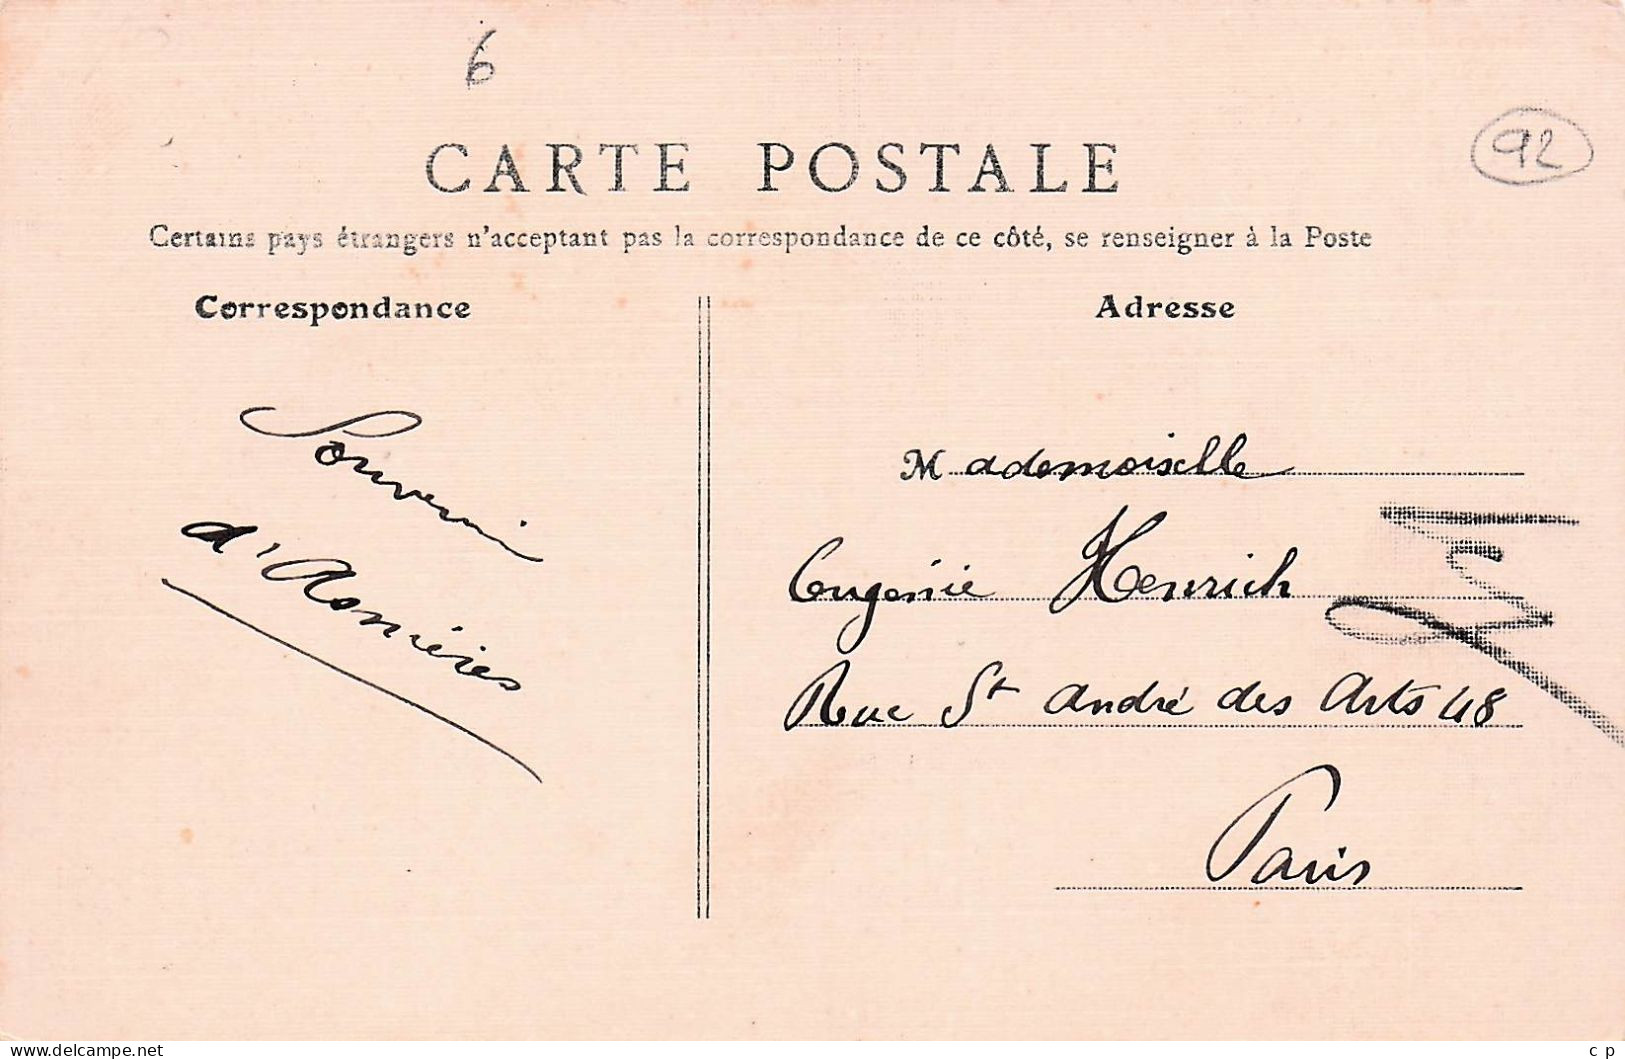 6
92
CARTE POSTALE
Certains pays étrangers n'acceptant pas la correspondance de ce côté, se renseigner à la Poste
Correspondance
Souvenir
d'Asnières
Adresse
Mademoiselle
Eugénie Henrich
Rue St André des Arts 48
Paris
www.delcampe.net
c p